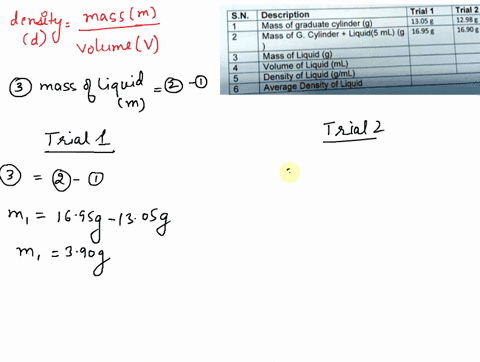 density = mass(m)
(d) volume(V)
③ mass of Liquid = ② - ①
(m)
S.N. Description Trial 1 Trial 2
1 Mass of graduate cylinder (g) 13.05 g 12.98 g
2 Mass of G. Cylinder + Liquid(5 mL) (g 16.95 g 16.90 g
)
3 Mass of Liquid (g)
4 Volume of Liquid (mL)
5 Density of Liquid (g/mL)
6 Average Density of Liquid
Trial 1
③ = ② - ①
m₁ = 16.95g - 13.05g
m₁ = 3.90g
Trial 2